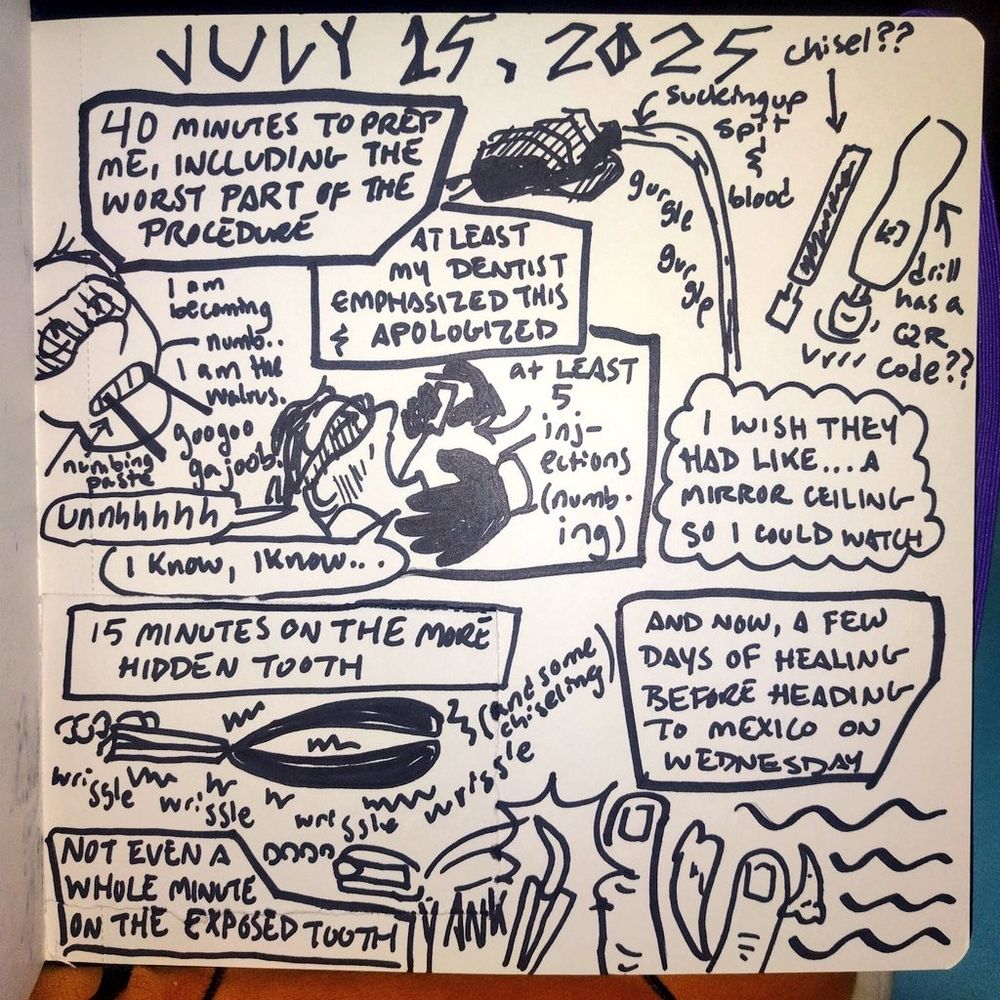 JULY 15, 2025
chisel??
40 MINUTES TO PREP
ME, INCLUDING THE
WORST PART OF THE
PROCEDURE
sucking up
spit
&
blood
gurgle
gurgle
drill
has a
QR
code??
vrrr
AT LEAST
MY DENTIST
EMPHASIZED THIS
& APOLOGIZED
I am
becoming
numb..
I am the
walrus.
googoo
gajoob.
numbing
paste
unnhhhhh
I KNOW, I KNOW...
at LEAST
5
inj-
ections
(numb-
ing)
I WISH THEY
HAD LIKE....A
MIRROR CEILING
SO I COULD WATCH
15 MINUTES ON THE MORE
HIDDEN TOOTH
(and some
chiseling)
wriggle
wriggle
wriggle
wriggle
AND NOW, A FEW
DAYS OF HEALING
BEFORE HEADING
TO MEXICO ON
WEDNESDAY
NOT EVEN A
WHOLE MINUTE
ON THE EXPOSED TOOTH
YANK